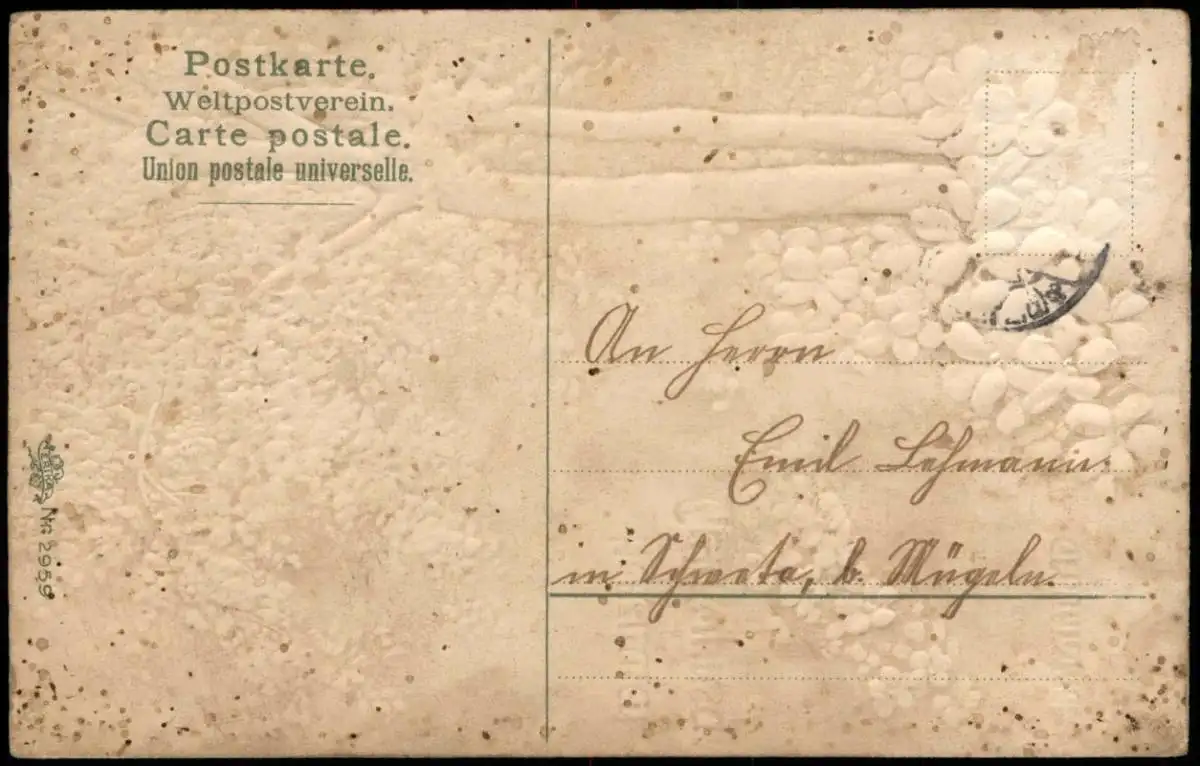 Postkarte.
Weltpostverein.
Carte postale.
Union postale universelle.
Nr. 2959
An Herrn
Emil Lehmann.
in Schweta, b. Mügeln.